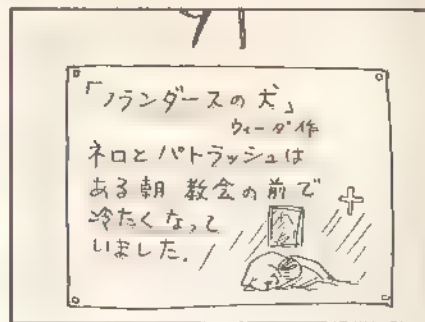 「フランダースの犬」
ウィーダ作
ネロとパトラッシュは
ある朝 教会の前で
冷たくなって
いました.